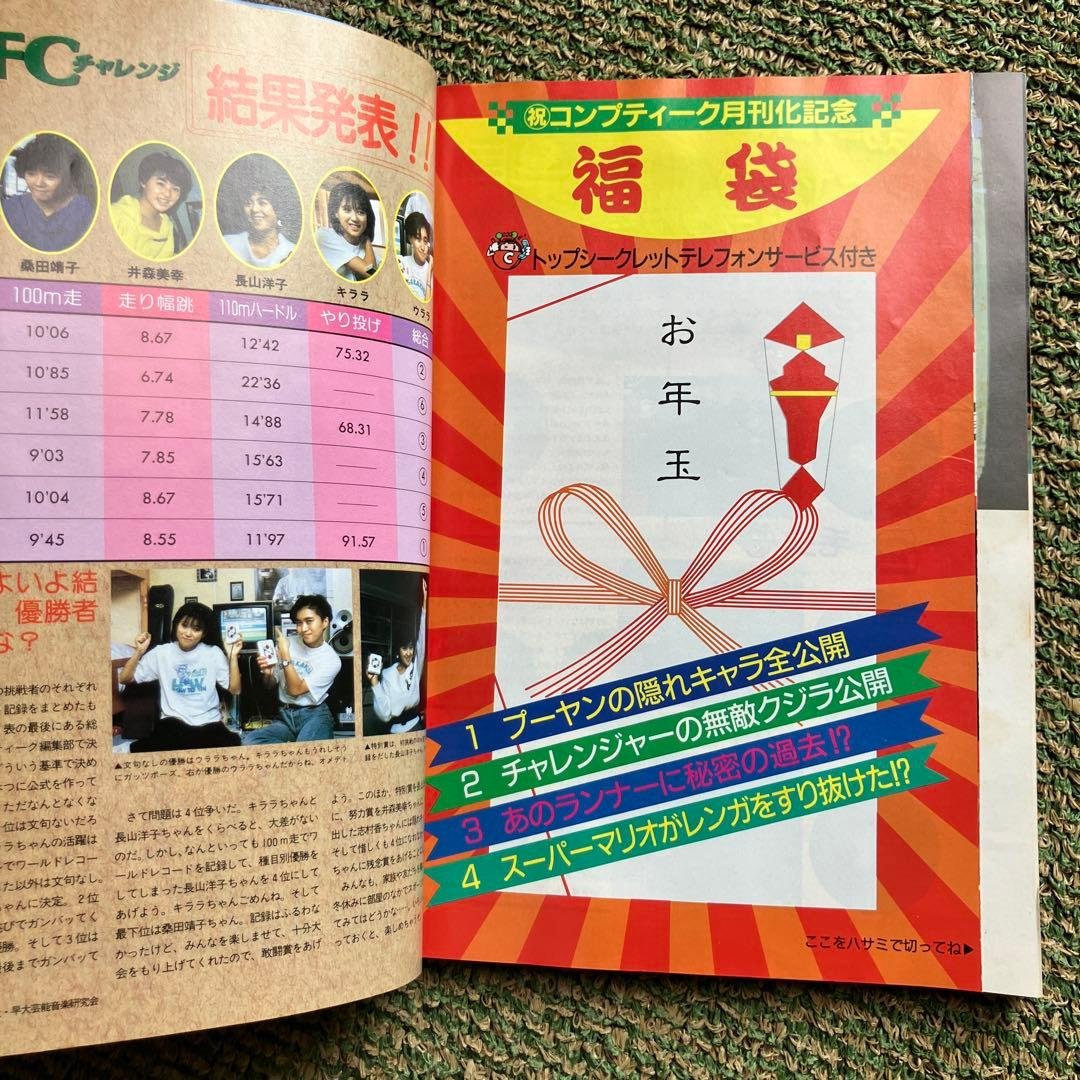 FCチャレンジ
結果発表!!
桑田靖子
井森美幸
長山洋子
キララ
ウララ
100m走 走り幅跳 110mハードル やり投げ 総合
10'06 8.67 12'42 75.32 ②
10'85 6.74 22'36 —— ⑥
11'58 7.78 14'88 68.31 ③
9'03 7.85 15'63 —— ④
10'04 8.67 15'71 —— ⑤
9'45 8.55 11'97 91.57 ①
よいよ結
優勝者
な?
の挑戦者のそれぞれ
記録をまとめたも
表の最後にある総
ティーク編集部で決
どういう基準で決め
とつに公式を作って
ただなんとなくな
位は文句ないだろ
ララちゃんの活躍は
しでワールドレコー
した以外は文句なし。
ちゃんに決定。2位
びでガンバッてく
勝。そして3位は
最後までガンバッて
▲文句なしの優勝はウララちゃん。キララちゃんもうれしそう
にガッツポーズ。右が優勝のウララちゃんだからね。オメデト
さて問題は4位争いだ。キララちゃんと
長山洋子ちゃんをくらべると、大差がない
のだ。しかし、なんといっても100m走でワ
ールドレコードを記録して、種目別優勝を
してしまった長山洋子ちゃんを4位にして
あげよう。キララちゃんごめんね。そして
最下位は桑田靖子ちゃん。記録はふるわな
かったけど、みんなを楽しませて、十分大
会をもり上げてくれたので、敢闘賞をあげ
▲特別賞は、初挑戦の
録をだした長山洋子ちゃん
よう。このほか、特別賞を
に、努力賞を井森美幸ちゃん
出した志村香ちゃんには
そして惜しくも4位に
ちゃんに残念賞をあげる
みんなも、家族や友だちを
冬休みに部屋のなかでスポー
てみてはどうかな
っておくと、楽しめちゃう
・早大芸能音楽研究会
㊗コンプティーク月刊化記念
福袋
トップシークレットテレフォンサービス付き
お年玉
1 プーヤンの隠れキャラ全公開
2 チャレンジャーの無敵クジラ公開
3 あのランナーに秘密の過去!?
4 スーパーマリオがレンガをすり抜けた!?
ここをハサミで切ってね▶